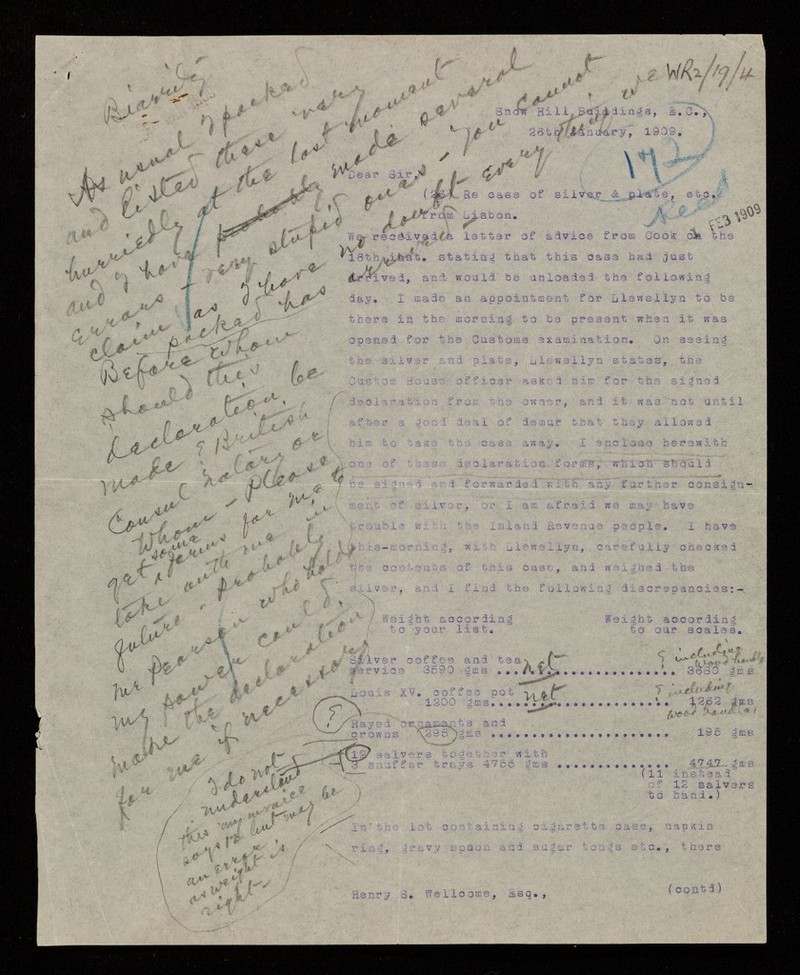 WR2/19/4
Snow Hill Buildings, E.C.,
26th January, 1909.
172
Recd
1 FEB 1909
Dear Sir,
Re case of silver & plate, etc.
from Lisbon.
We received a letter of advice from Cook on the
18th inst. stating that this case had just
arrived, and would be unloaded the following
day. I made an appointment for Llewellyn to be
there in the morning to be present when it was
opened for the Customs examination. On seeing
the silver and plate, Llewellyn states, the
Custom House officer asked him for the signed
declaration from the owner, and it was not until
after a good deal of demur that they allowed
him to take the case away. I enclose herewith
one of these declaration forms, which should
be signed and forwarded with any further consign-
ment of silver, or I am afraid we may have
trouble with the Inland Revenue people. I have
this-morning, with Llewellyn, carefully checked
the contents of this case, and weighed the
silver, and I find the following discrepancies:-
Weight according Weight according
to your list. to our scales.
Silver coffee and tea net ? including wood handle
service 3590 gms ........................ 3680 gms
Louis XV. coffee pot net ? including
1200 gms........................ 1262 gms
wood handles
? Rayed ornaments and
crowns 295 gms ........................ 195 gms
12 salvers together with
3 snuffer trays 4755 gms ............... 4747 gms
(11 instead
of 12 salvers
to hand.)
In the lot containing cigarette case, napkin
ring, gravy spoon and sugar tongs etc., there
Henry S. Wellcome, Esq., (contd)
Biarritz
As usual I packed
and listed these very
hurriedly at the last moment
and I have probably made several
errors - very stupid ones - You cannot
claim as I have no doubt everything we
packed has arrived -
Before whom
should this
declaration be
made ? British
Consul notary or
whom - Please
get some forms for me to
take with me in
future - Probably
Mr Pearson who holds
my power could
make the declaration
for me if necessary
I do not
understand
this my invoice
says 12 but may be
an error
as weight is
right -